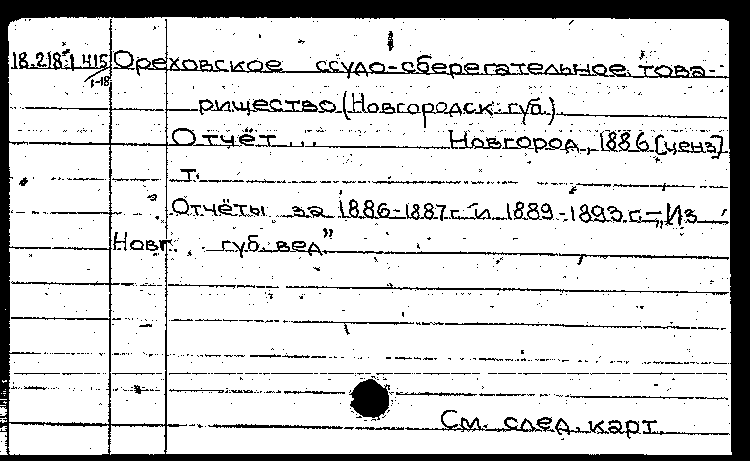 18.218.1 415 Ореховское ссудо-сберегательное това-
1-18
рищество (Новгородск. губ.).
Отчёт ... Новгород, 1886 [ценз]
т.
Отчёты за 1886-1887 г. и 1889-1893 г. – „Из
Новг. губ. вед."
См. след. карт.